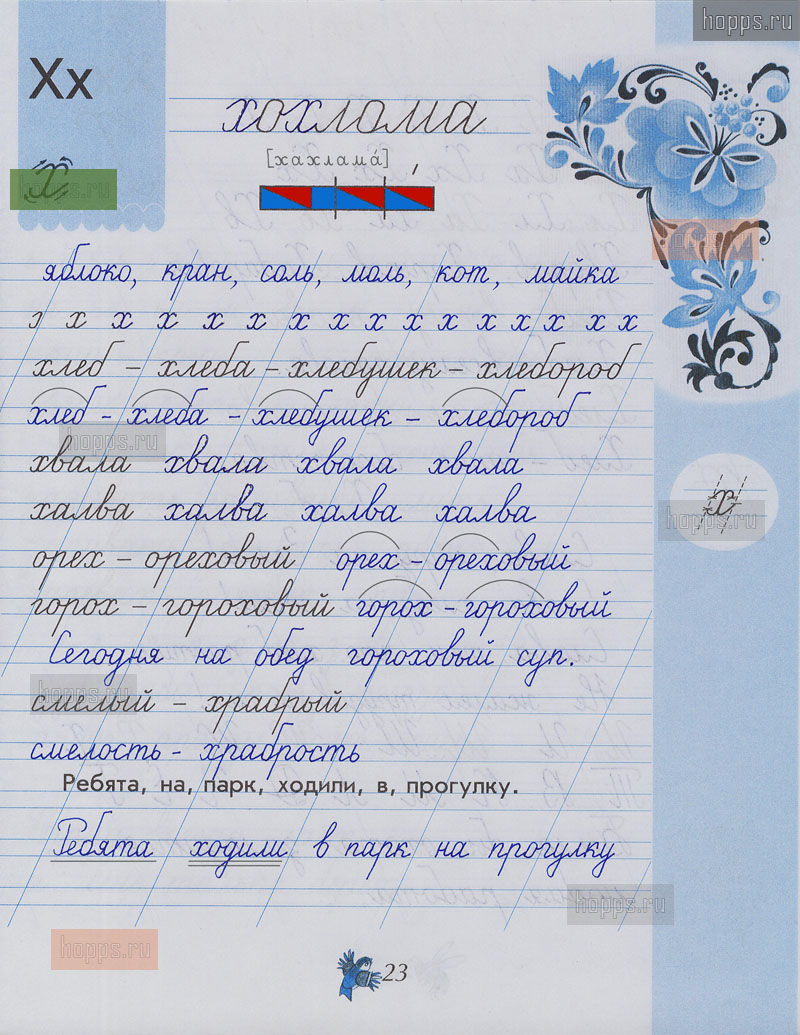 hopps.ru
Хх
хохлома
[хахлама́]
х
hopps.ru
яблоко, кран, соль, моль, кот, майка
х х х х х х х х х х х х х х х х
хлеб – хлеба – хлебушек – хлебороб
хлеб – хлеба – хлебушек – хлебороб
hopps.ru
хвала хвала хвала хвала
халва халва халва халва
х
hopps.ru
орех – ореховый орех – ореховый
горох – гороховый горох – гороховый
Сегодня на обед гороховый суп.
hopps.ru
смелый – храбрый
смелость – храбрость
Ребята, на, парк, ходили, в, прогулку.
Ребята ходили в парк на прогулку
hopps.ru
hopps.ru
23